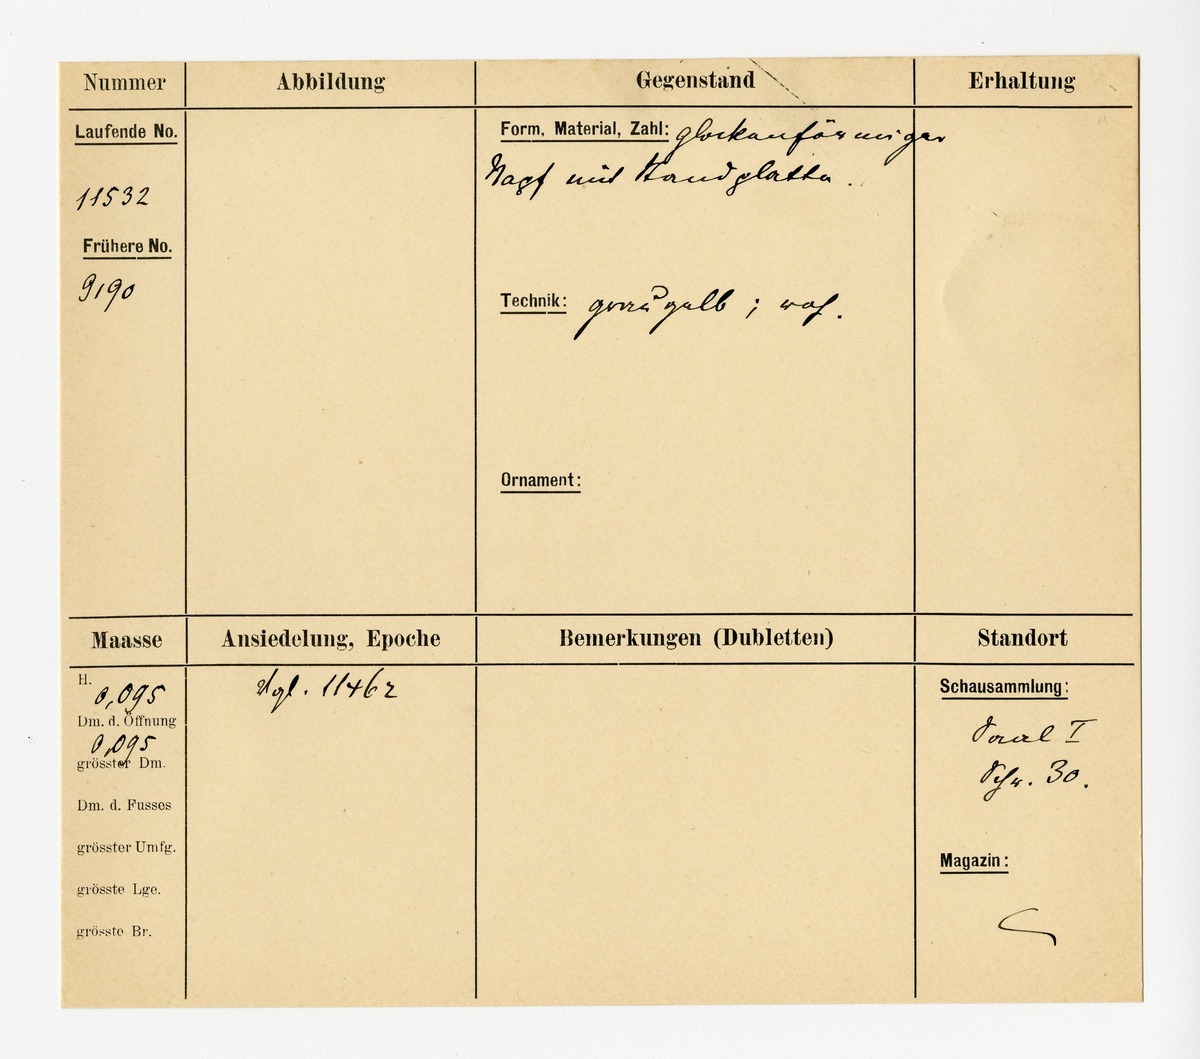 Nummer
Abbildung
Gegenstand
Erhaltung
Laufende No.
11532
Frühere No.
9190
Form, Material, Zahl: glockenförmiger
Napf mit Standplatte.
Technik: graugelb; roh.
Ornament:
Maasse
Ansiedelung, Epoche
Bemerkungen (Dubletten)
Standort
H.
0,095
Dm. d. Öffnung
0,095
grösster Dm.
Dm. d. Fusses
grösster Umfg.
grösste Lge.
grösste Br.
Vgl. 11462
Schausammlung:
Saal I
Schr. 30.
Magazin: